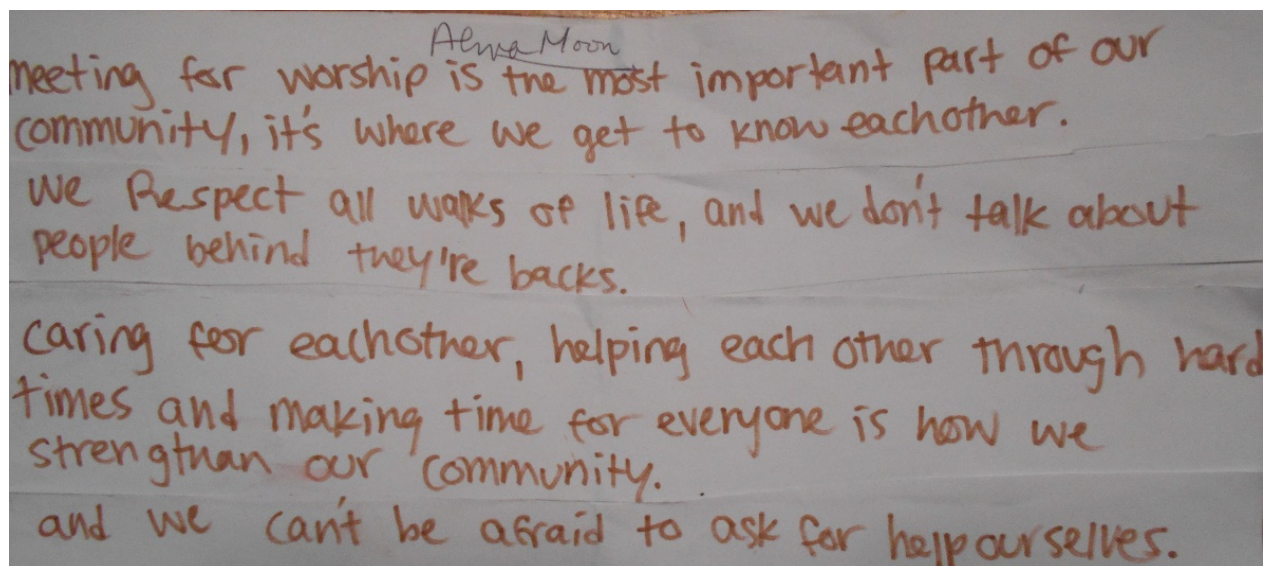 Alwa Moon
meeting for worship is the most important part of our
community, it's where we get to know eachother.
we Respect all walks of life, and we don't talk about
people behind they're backs.
caring for eachother, helping each other through hard
times and making time for everyone is how we
strengthan our community.
and we can't be afraid to ask for help ourselves.